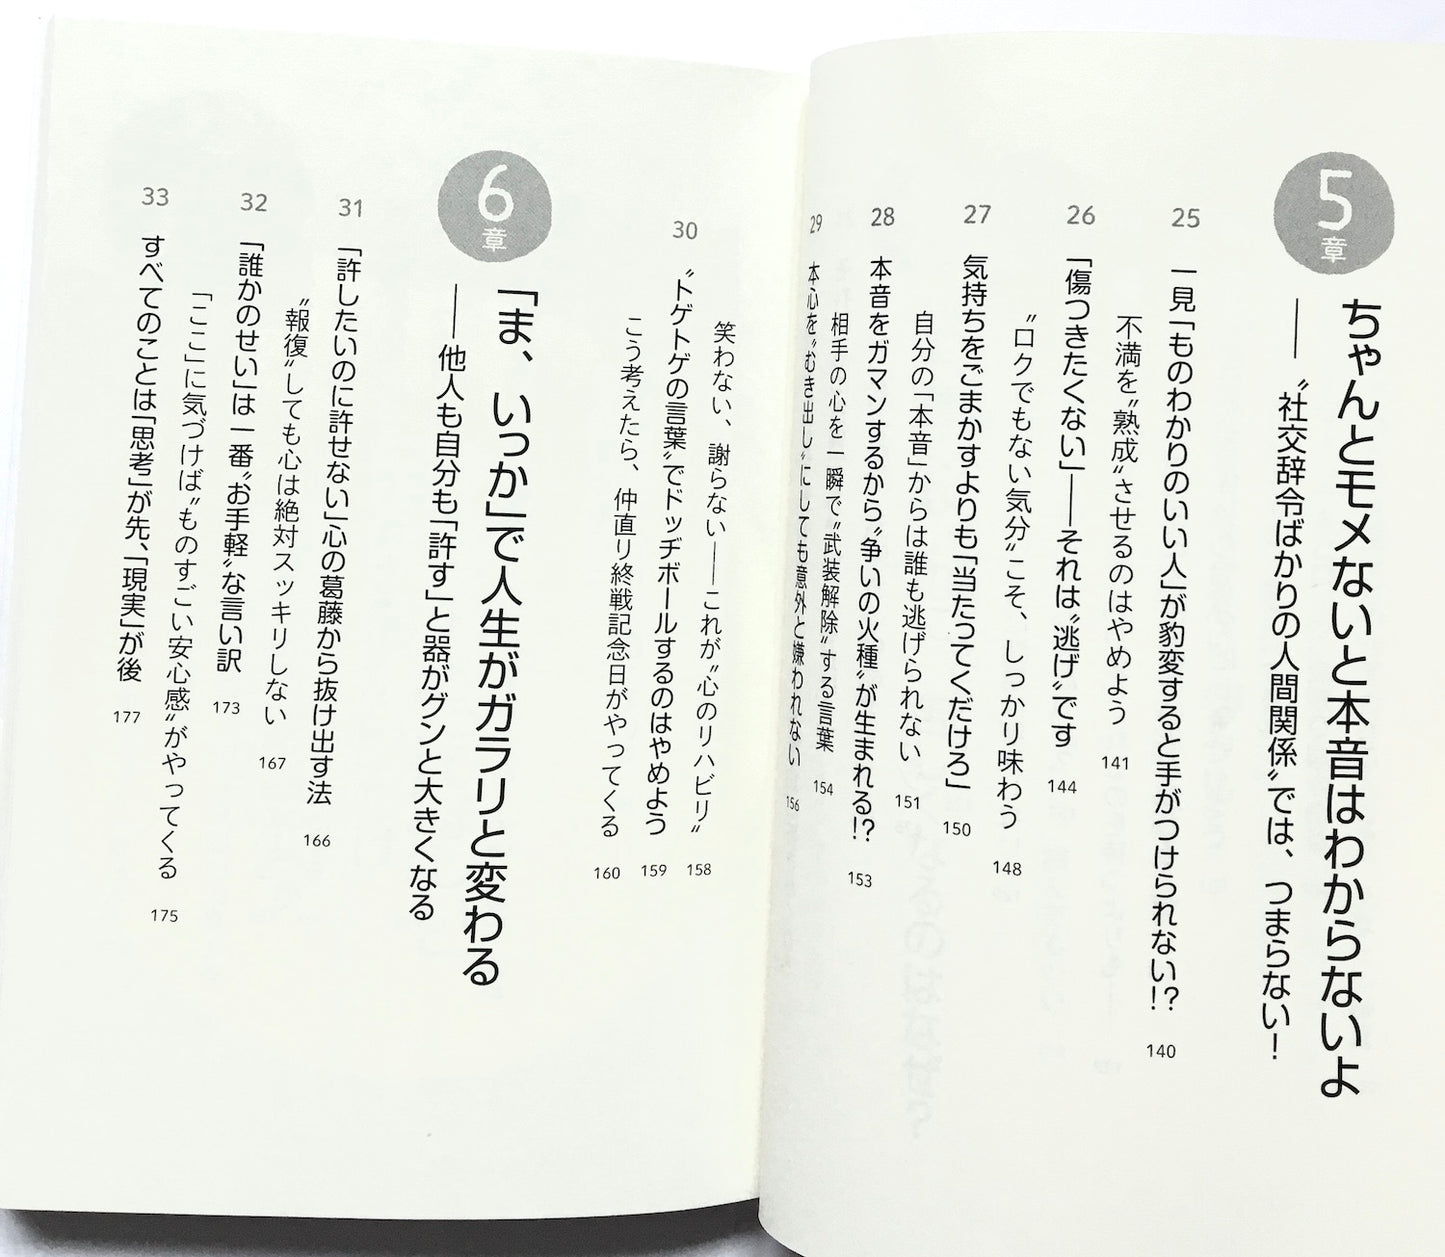 5章
ちゃんとモメないと本音はわからないよ
――〝社交辞令ばかりの人間関係〟では、つまらない！
25 一見「ものわかりのいい人」が豹変すると手がつけられない!? 140
不満を〝熟成〟させるのはやめよう 141
26 「傷つきたくない」――それは〝逃げ〟です 144
〝ロクでもない気分〟こそ、しっかり味わう 148
27 気持ちをごまかすよりも「当たってくだけろ」 150
自分の「本音」からは誰も逃げられない 151
28 本音をガマンするから〝争いの火種〟が生まれる!? 153
相手の心を一瞬で〝武装解除〟する言葉 154
29 本心を〝むき出し〟にしても意外と嫌われない 156
笑わない、謝らない――これが〝心のリハビリ〟 158
30 〝トゲトゲの言葉〟でドッヂボールするのはやめよう 159
こう考えたら、仲直り終戦記念日がやってくる 160
6章
「ま、いっか」で人生がガラリと変わる
――他人も自分も「許す」と器がグンと大きくなる
31 「許したいのに許せない」心の葛藤から抜け出す法 166
〝報復〟しても心は絶対スッキリしない 167
32 「誰かのせい」は一番〝お手軽〟な言い訳 173
「ここ」に気づけば〝ものすごい安心感〟がやってくる 175
33 すべてのことは「思考」が先、「現実」が後 177